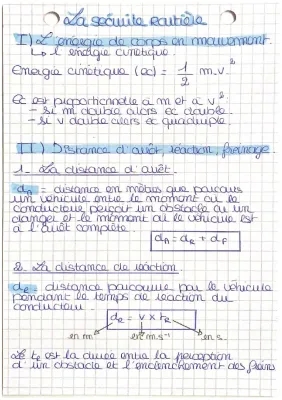 La sécurité routière
I) L'énergie de corps en mouvement.
↳ l'énergie cinétique.
Energie cinétique (ec) = 1/2 m.v²
Ec est proportionnelle à m et à v² :
- si m double alors ec double.
- si v double alors ec quadruple.
II) Distance d'arrêt, réaction, freinage
1. La distance d'arrêt.
dA = distance en mètres que parcours
un véhicule entre le moment où le
conducteur perçoit un obstacle ou un
danger et le moment où le véhicule est
à l'arrêt complète.
dA = dR + dF
2. La distance de réaction.
dR : distance parcourue par le véhicule
pendant le temps de réaction du
conducteur.
dR = v x tR
en m en m.s⁻¹ en s.
Le tR est la durée entre la perception
d'un obstacle et l'enclenchement des freins